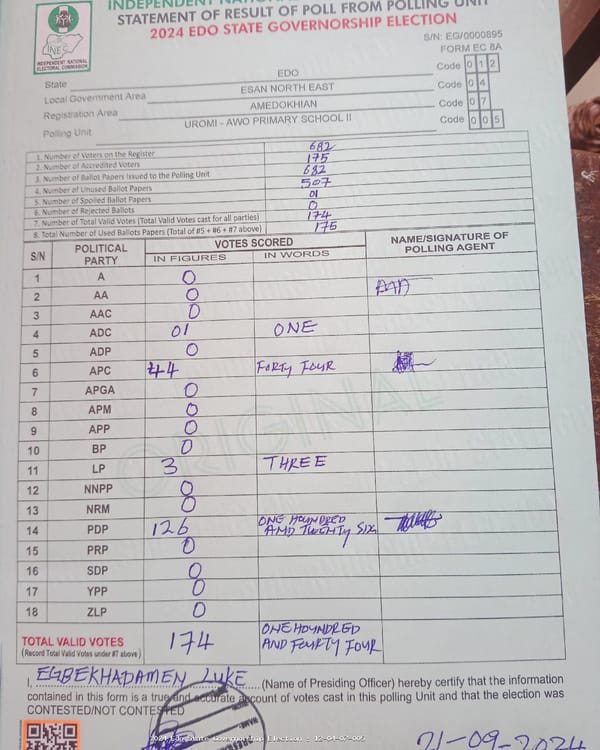 INDEPENDENT NATIONAL
STATEMENT OF RESULT OF POLL FROM POLLING UNIT
2024 EDO STATE GOVERNORSHIP ELECTION
INEC
INDEPENDENT NATIONAL ELECTORAL COMMISSION
S/N: EG/0000895
FORM EC 8A
State EDO Code 0 1 2
Local Government Area ESAN NORTH EAST Code 0 4
Registration Area AMEDOKHIAN Code 0 7
Polling Unit UROMI - AWO PRIMARY SCHOOL II Code 0 0 5
1. Number of Voters on the Register 682
2. Number of Accredited Voters 175
3. Number of Ballot Papers Issued to the Polling Unit 682
4. Number of Unused Ballot Papers 507
5. Number of Spoiled Ballot Papers 01
6. Number of Rejected Ballots 0
7. Number of Total Valid Votes (Total Valid Votes cast for all parties) 174
8. Total Number of Used Ballots Papers (Total of #5 + #6 + #7 above) 175
S/N POLITICAL PARTY VOTES SCORED NAME/SIGNATURE OF POLLING AGENT
IN FIGURES IN WORDS
1 A 0
2 AA 0
3 AAC 0
4 ADC 01 ONE
5 ADP 0
6 APC 44 FORTY FOUR
7 APGA 0
8 APM 0
9 APP 0
10 BP 0
11 LP 3 THREE
12 NNPP 0
13 NRM 0
14 PDP 126 ONE HOUNDRED AND TWENTY SIX
15 PRP 0
16 SDP 0
17 YPP 0
18 ZLP 0
ORIGINAL
TOTAL VALID VOTES 174 ONE HOUNDRED AND FOURTY FOUR
(Record Total Valid Votes under #7 above)
I, EGBEKHADAMEN LUKE (Name of Presiding Officer) hereby certify that the information
contained in this form is a true and accurate account of votes cast in this polling Unit and that the election was
CONTESTED/NOT CONTESTED
2024 Edo State Governorship Election - 12-04-07-005
21-09-2024